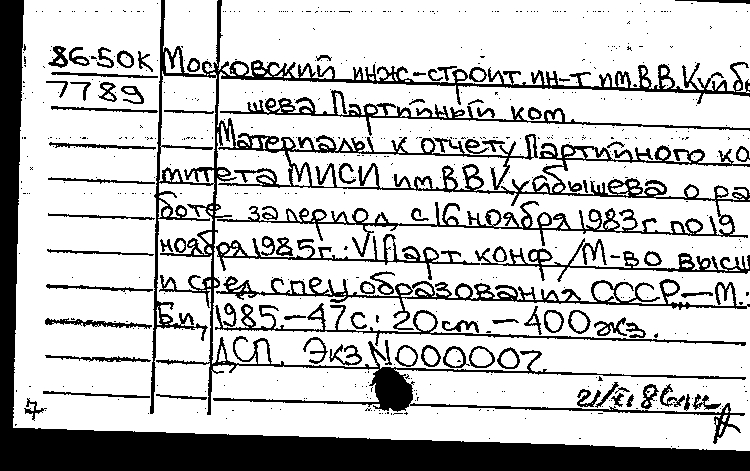 86-50К Московский инж.-строит. ин-т им. В.В. Куйбы
7789 шева. Партийный ком.
Материалы к отчету Партийного ко
митета МИСИ им. В В Куйбышева о ра
боте за период с 16 ноября 1983 г. по 19
ноября 1985 г.: VI Парт. конф. / М-во высш
и сред. спец. образования СССР. - М.:
Б.и., 1985. - 47 с.; 20 см. - 400 экз.
ДСП. Экз. N 000007.